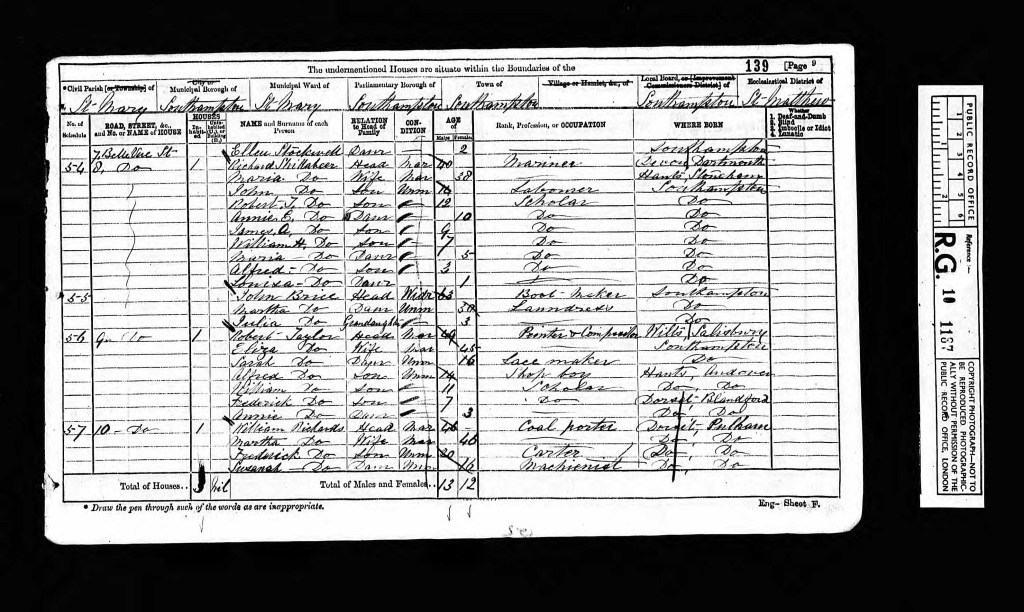 The undermentioned Houses are situate within the Boundaries of the 139 [Page 9
*Civil Parish [or Township] of City or Municipal Borough of Municipal Ward of Parliamentary Borough of Town of Village or Hamlet, &c., of Local Board, or [Improvement Commissioners District] of Ecclesiastical District of
St Mary Southampton St Mary Southampton Southampton Southampton St Matthew
No. of Schedule ROAD, STREET, &c., and No. or NAME of HOUSE HOUSES Inhabited Uninhabited (U.), or Building (B.) NAME and Surname of each Person RELATION to Head of Family CONDITION AGE of Males Females Rank, Profession, or OCCUPATION WHERE BORN Whether 1. Deaf-and-Dumb 2. Blind 3. Imbecile or Idiot 4. Lunatic
7, BelleVue St Ellen Stockwell Daur 2 Southampton
54 8, Do 1 Richard Shillabeer Head Mar 40 Mariner Devon Dartmouth
Maria Do Wife Mar 38 Hants Stoneham
John Do Son Unm Labourer Southampton
Robert T. Do Son 12 Scholar Do
Annie E. Do Daur 10 Do Do
James A. Do Son 9 Do Do
William H. Do Son 7 Do Do
Maria Do Daur 5 Do Do
Alfred Do Son 3 Do Do
Louisa Do Daur 1 Do
55 John Brice Head Widr 63 Boot Maker Southampton
Martha Do Daur Unm 30 Laundress Do
Julia Do Grandaughter 3 Do
56 9, Do 1 Robert Taylor Head Mar 49 Printer & Compositor Wilts, Salisbury
Eliza Do Wife Mar 45 Southampton
Sarah Do Daur Unm 16 Lace maker Do
Alfred Do Son Unm 14 Shop boy Hants, Andover
William Do Son 11 Scholar Do Do
Federick Do Son 7 Do Dorset, Blandford
Annie Do Daur 3 Do Do
57 10 Do 1 William Richards Head Mar 46 Coal porter Dorset, Pulham
Martha Do Wife Mar 46 Do Do
Frederick Do Son Unm 20 Carter Do, Do
Susanah Do Daur Unm 16 Machienist Do, Do
Total of Houses.. 3 nil Total of Males and Females.. 13 12
* Draw the pen through such of the words as are inappropriate. Eng— Sheet F.
PUBLIC RECORD OFFICE
1 2 3 4 5 6
Reference :-
R.G. 10 1187
COPYRIGHT PHOTOGRAPH—NOT TO BE REPRODUCED PHOTOGRAPHICALLY WITHOUT PERMISSION OF THE PUBLIC RECORD OFFICE, LONDON